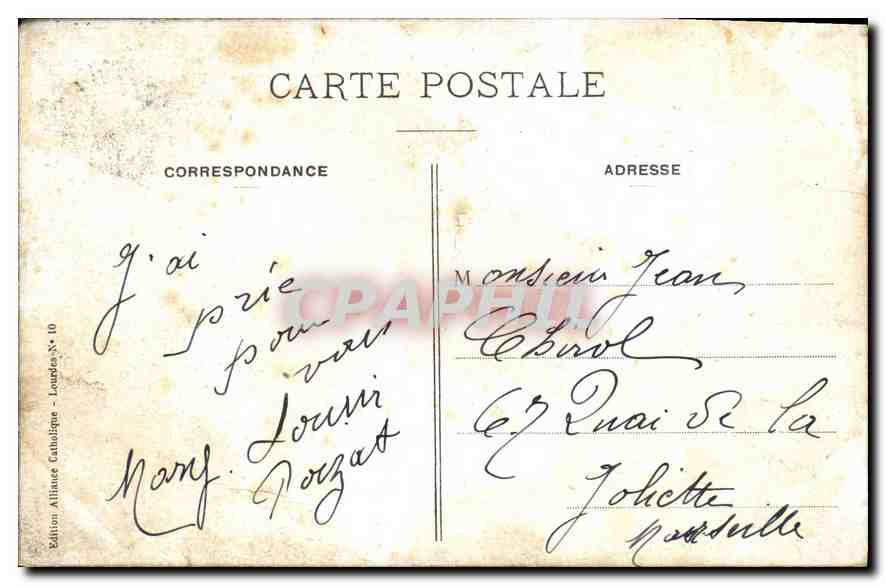 CARTE POSTALE
CORRESPONDANCE
J'ai
prié
pour
vous
Mary. Louise
Poizat
ADRESSE
Monsieur Jean
Chirol
67 Quai de la
Joliette
Marseille
Edition Alliance Catholique - Lourdes - N° 10
CPAPHIL